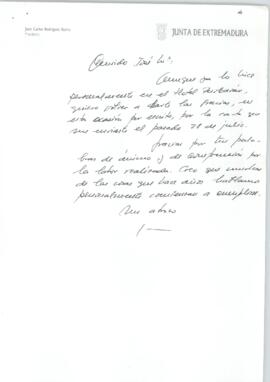 Juan Carlos Rodríguez Ibarra
Presidente
JUNTA DE EXTREMADURA
Querido José Mª,
Aunque ya lo hice
personalmente en el Hotel
quiero volver a darte las gracias, en
esta ocasión por escrito, por la carta que
me enviaste el pasado 28 de julio.
Gracias por tus pala-
bras de ánimo y de comprensión por
la labor realizada. Creo que muchas
de las cosas que hace años hablamos
personalmente comienzan a cumplirse.
Un abrazo